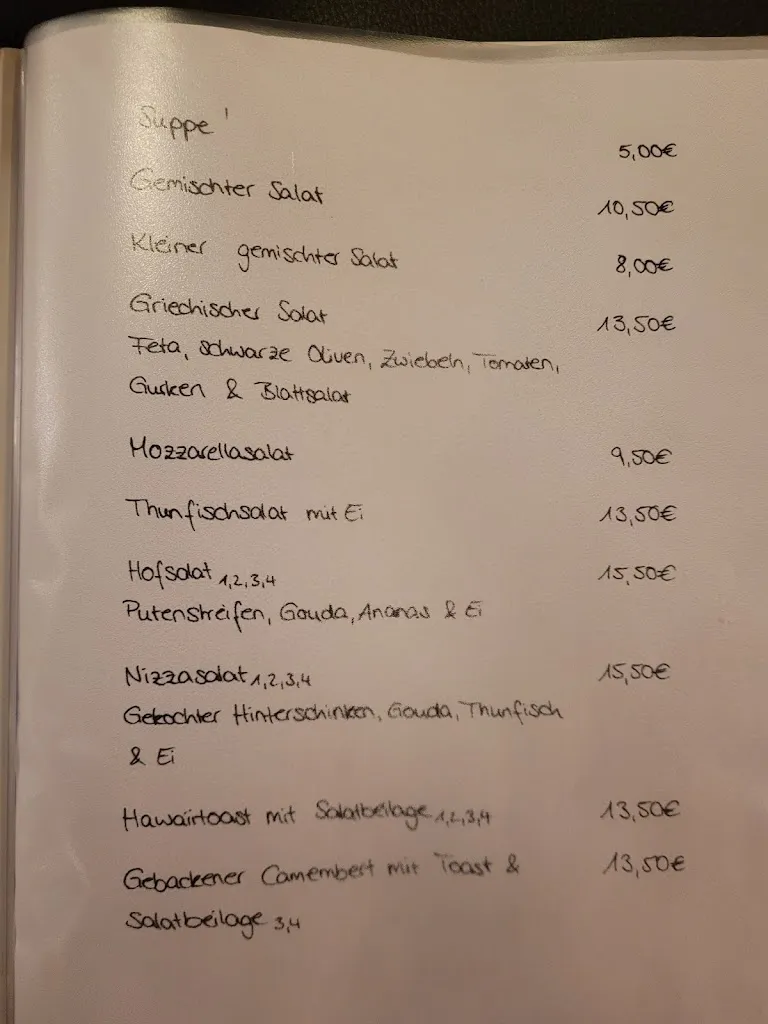 Suppe 1 5,00€
Gemischter Salat 10,50€
Kleiner gemischter Salat 8,00€
Griechischer Salat 13,50€
Feta, schwarze Oliven, Zwiebeln, Tomaten,
Gurken & Blattsalat
Mozzarellasalat 9,50€
Thunfischsalat mit Ei 13,50€
Hofsalat 1,2,3,4 15,50€
Putenstreifen, Gouda, Ananas & Ei
Nizzasalat 1,2,3,4 15,50€
Gekochter Hinterschinken, Gouda, Thunfisch
& Ei
Hawaiitoast mit Salatbeilage 1,2,3,4 13,50€
Gebackener Camembert mit Toast & 13,50€
Salatbeilage 3,4